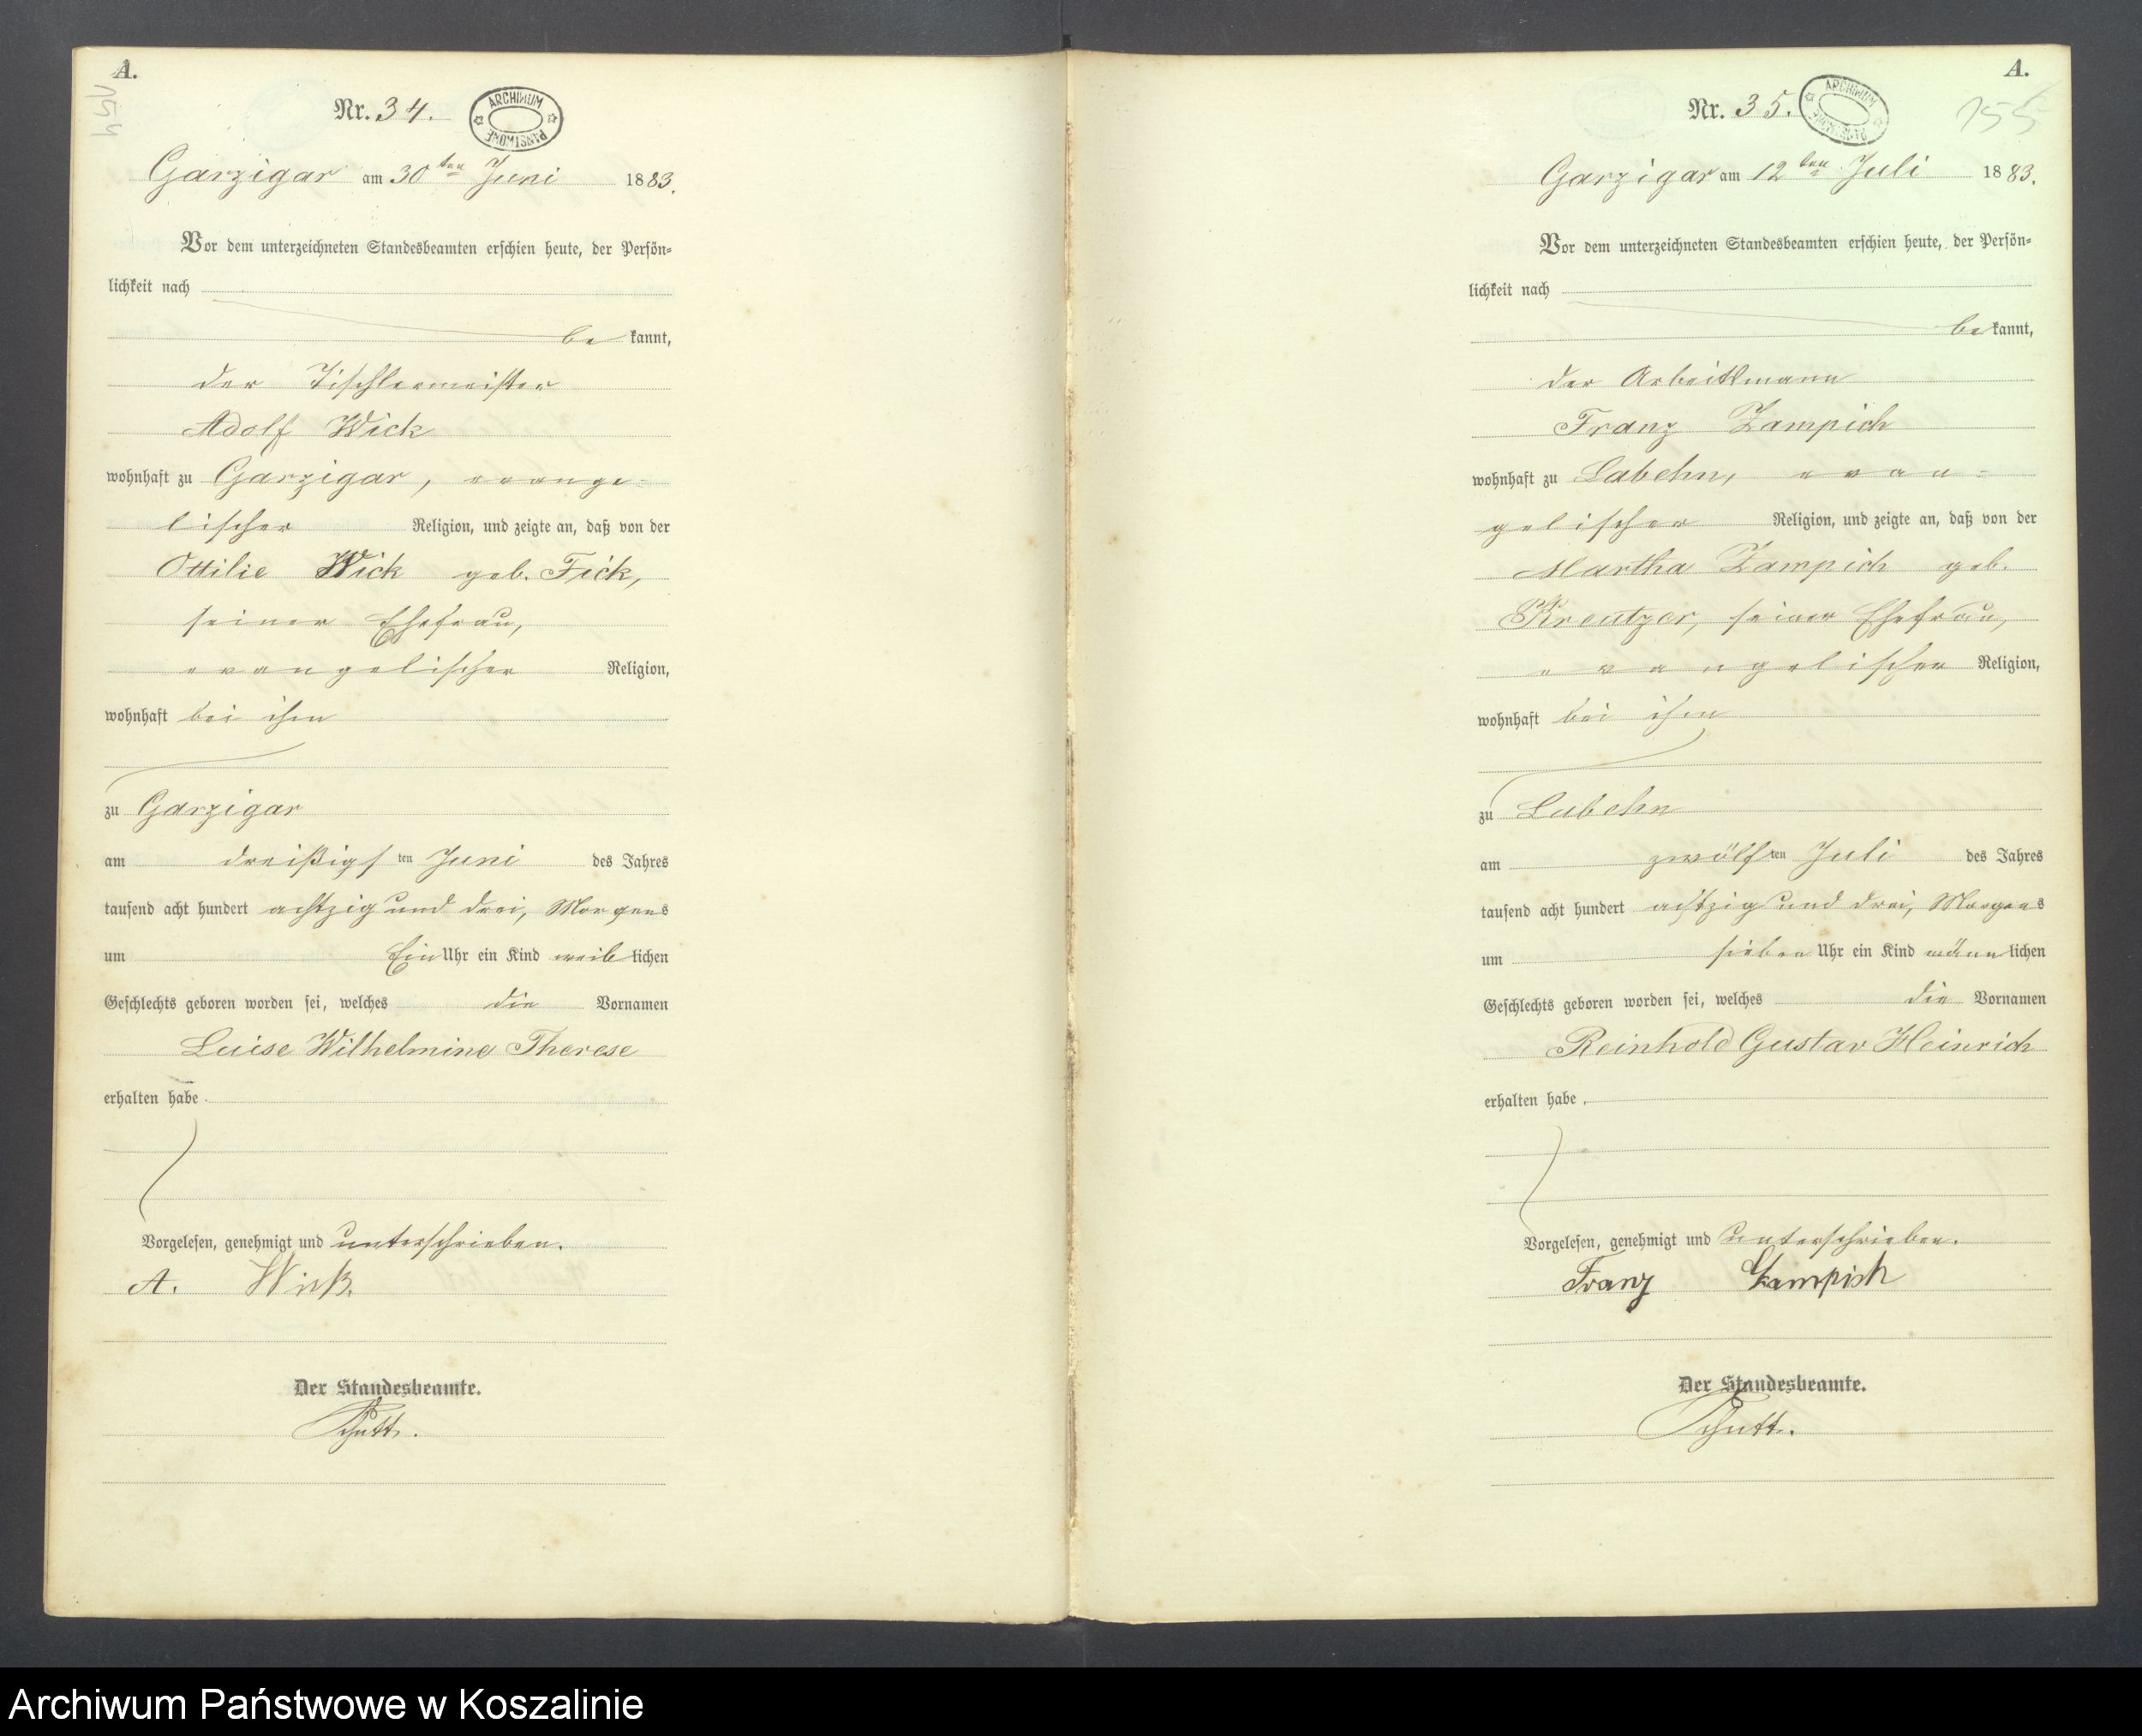 A.
154
Nr. 34.
ARCHIWUM PAŃSTWOWE
Garzigar am 30ten Juni 1883.
Vor dem unterzeichneten Standesbeamten erschien heute, der Persön-
lichkeit nach
be kannt,
der Tischlermeister
Adolf Wick
wohnhaft zu Garzigar, evange-
lischer Religion, und zeigte an, daß von der
Ottilie Wick geb. Fick,
seiner Ehefrau,
evangelischer Religion,
wohnhaft bei ihm
zu Garzigar
am dreißigsten Juni des Jahres
tausend acht hundert achtzig und drei, Morgens
um Ein Uhr ein Kind weiblichen
Geschlechts geboren worden sei, welches die Vornamen
Luise Wilhelmine Therese
erhalten habe.
Vorgelesen, genehmigt und unterschrieben.
A. Wick.
Der Standesbeamte.
A.
155
Nr. 35.
ARCHIWUM PAŃSTWOWE
Garzigar am 12ten Juli 1883.
Vor dem unterzeichneten Standesbeamten erschien heute, der Persön-
lichkeit nach
be kannt,
der Arbeitsmann
Franz Zampich
wohnhaft zu Labehn, evan-
gelischer Religion, und zeigte an, daß von der
Martha Zampich geb.
Kreutzer, seiner Ehefrau,
evangelischer Religion,
wohnhaft bei ihm
zu Labehn
am zwölften Juli des Jahres
tausend acht hundert achtzig und drei, Morgens
um sieben Uhr ein Kind männlichen
Geschlechts geboren worden sei, welches die Vornamen
Reinhold Gustav Heinrich
erhalten habe.
Vorgelesen, genehmigt und unterschrieben.
Franz Zampich
Der Standesbeamte.
Archiwum Państwowe w Koszalinie